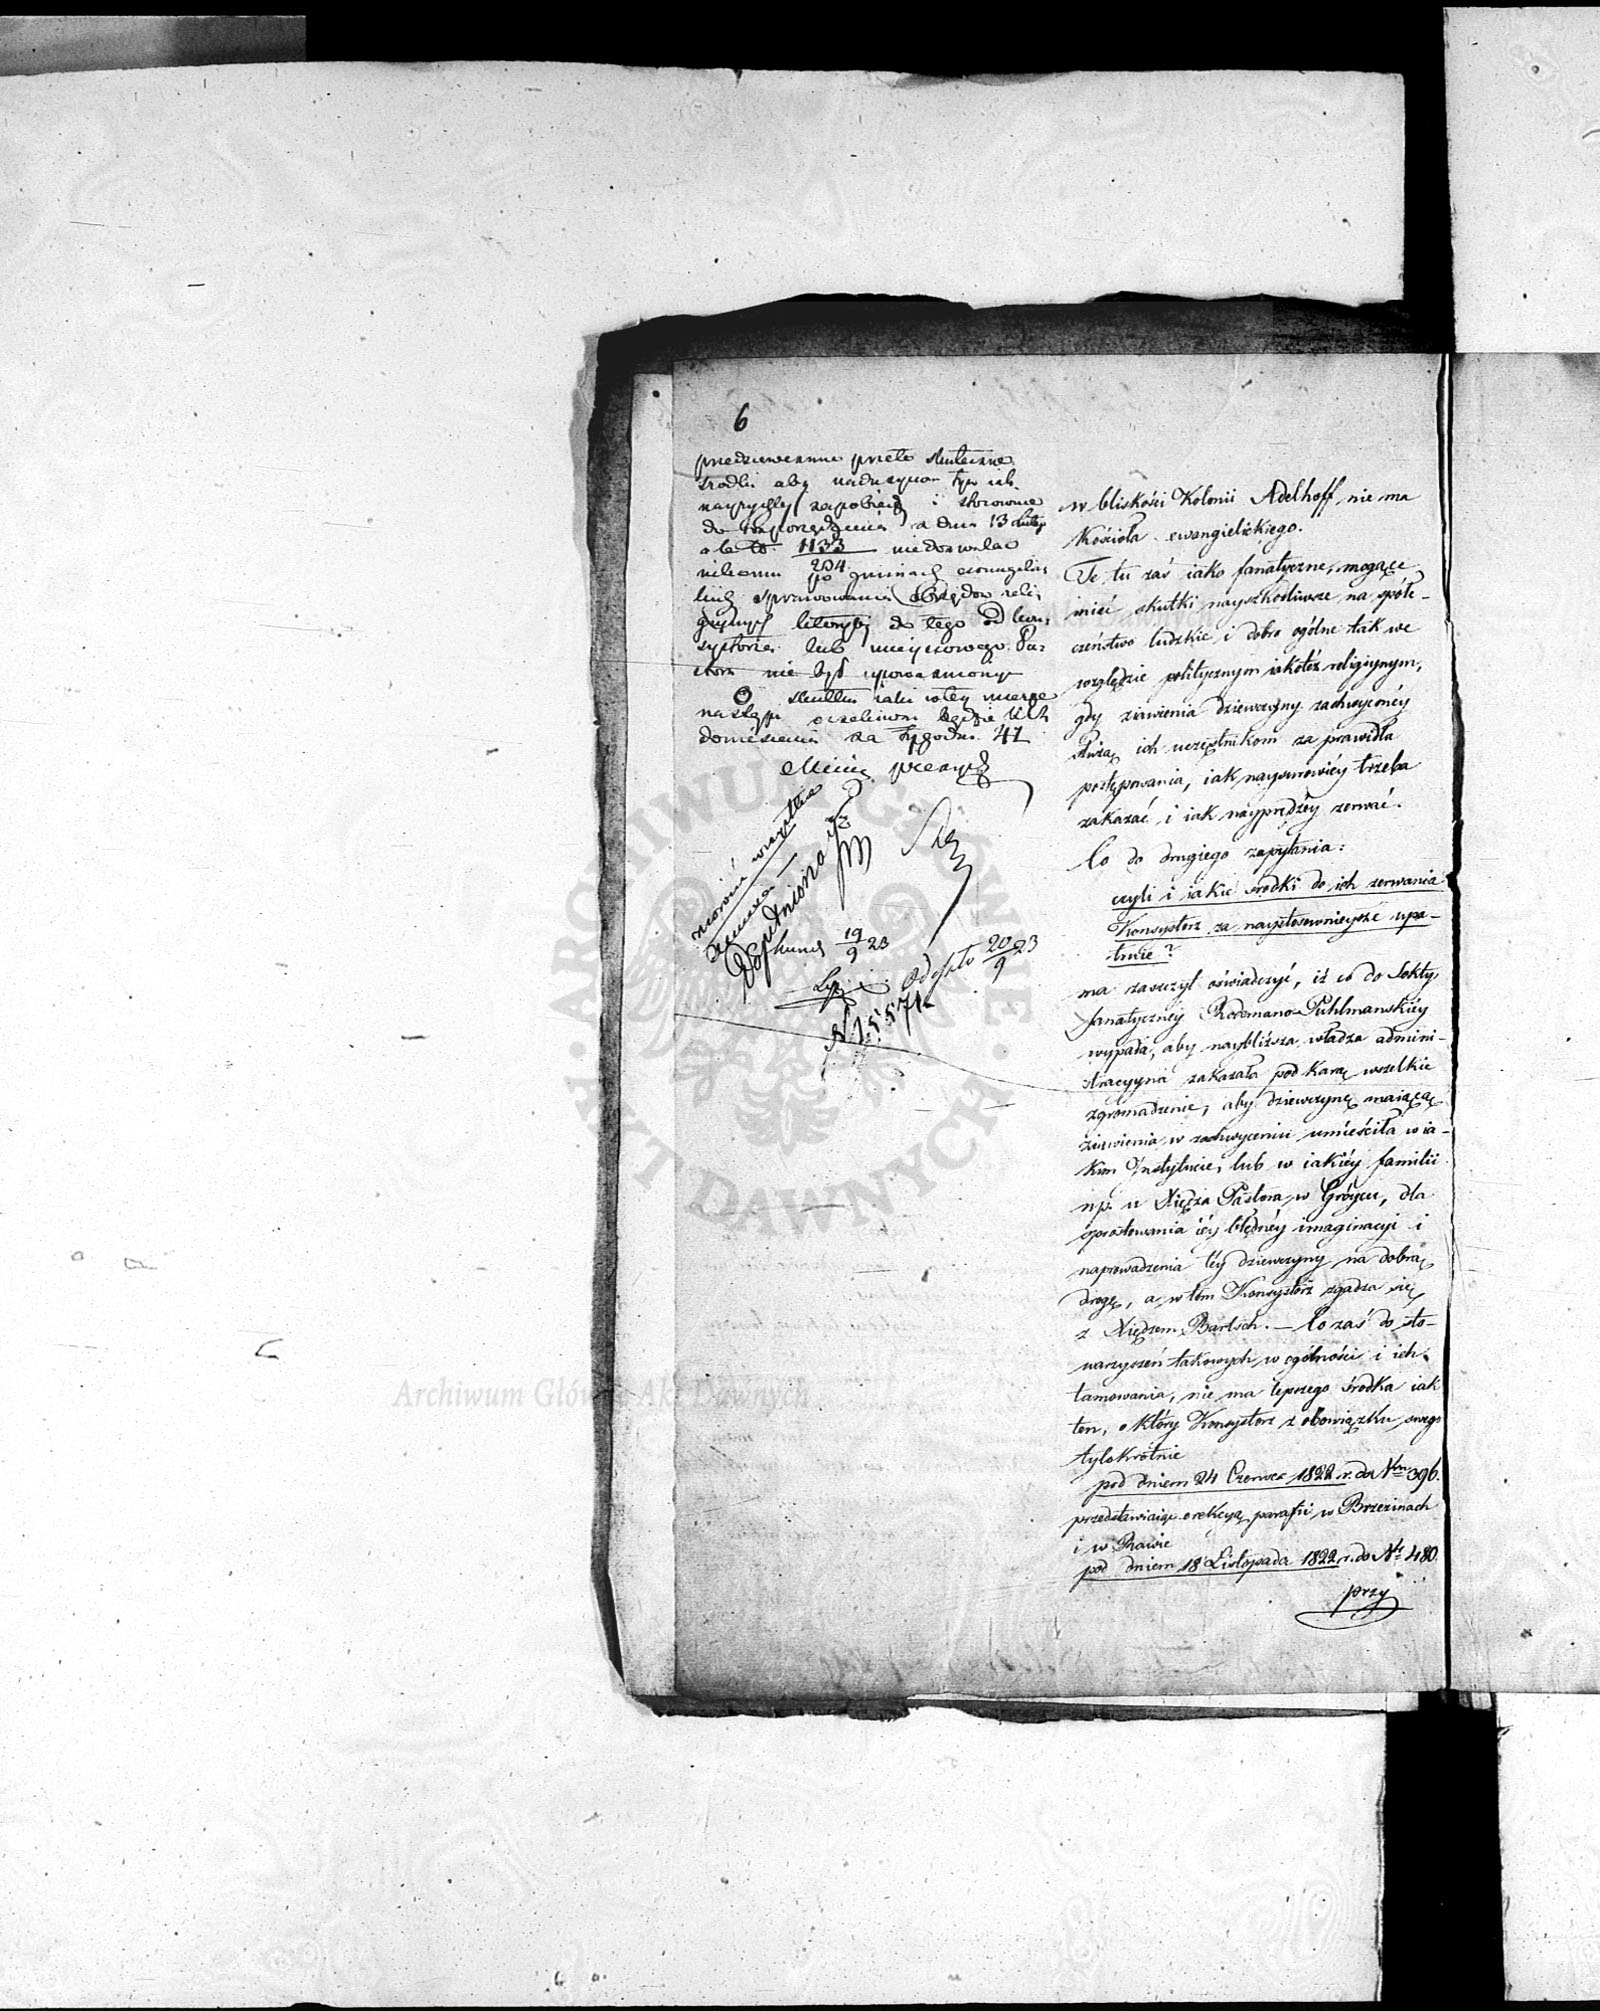 6
środki aby nadużyciom tym iak
nayprędzey zapobiedz i stosownie
do rozporządzenia z dnia 13 Lutego
1133
234
niedozwalać
nikomu po gminach ewangelic
kich sprawowania Obrzędów reli
giynych któryby do tego od Kon
systorza lub mieyscowego Pa
stora nie był upoważniony
O skutku iaki w tey mierze
nastąpi oczekiwać będzie
doniesienia za tygodni 4
19
9 23
Odeszło 20
9 23
N. 15571
w bliskości Kolonii Adelhoff, nie ma
Kościoła ewangielickiego.
Te tu zaś iako fanatyczne, mogące
mieć skutki nayszkodliwsze na społe-
czeństwo ludzkie i dobro ogólne tak we
względzie politycznym iakoteż religiynym,
gdy ziawienia dziewczyny zachwyconéy
służą ich uczęstnikom za prawidła
postępowania, iak naysurowiéy trzeba
zakazać i iak nayprędzéy zerwać.
Co do drugiego zapytania:
czyli i iakie środki do ich zerwania
Konsystorz za naystosownieysze upa-
truie?
ma zaszczyt oświadczyć, iż co do Sekty
fanatycznéy Rodemano-Puhlmanskiéy
wypada, aby naybliższa władza admini-
stracyyna zakazała pod karą wszelkie
zgromadzenie, aby dziewczynę maiącą
ziawienia w zachwyceniu umieściła w ia-
kim Instytucie, lub w iakiéy familii
np. u Xiędza Pastora w Gróycu, dla
sprostowania iéy błędnéy imaginacyi i
naprowadzenia téy dziewczyny na dobrą
drogę, a w tém Konsystorz zgadza się
z Xiędzem Bartsch. — Co zaś do sto-
warzyszeń takowych w ogólności i ich
tamowania, nie ma lepszego środka iak
ten, o który Konsystorz z obowiązku swego
tylokrotnie
pod dniem 24 Czerwca 1822 r. do Nru 396.
przedstawiaiąc erekcyą parafii w Brzezinach
i w Rawie
pod dniem 18 Listopada 1822 r. do Nr 480.
przy
ARCHIWUM GŁÓWNE AKT DAWNYCH
Archiwum Główne Akt Dawnych